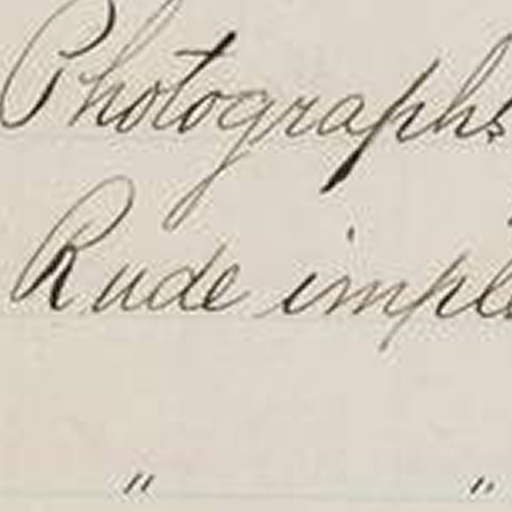 Photographs
Rude impl
" "